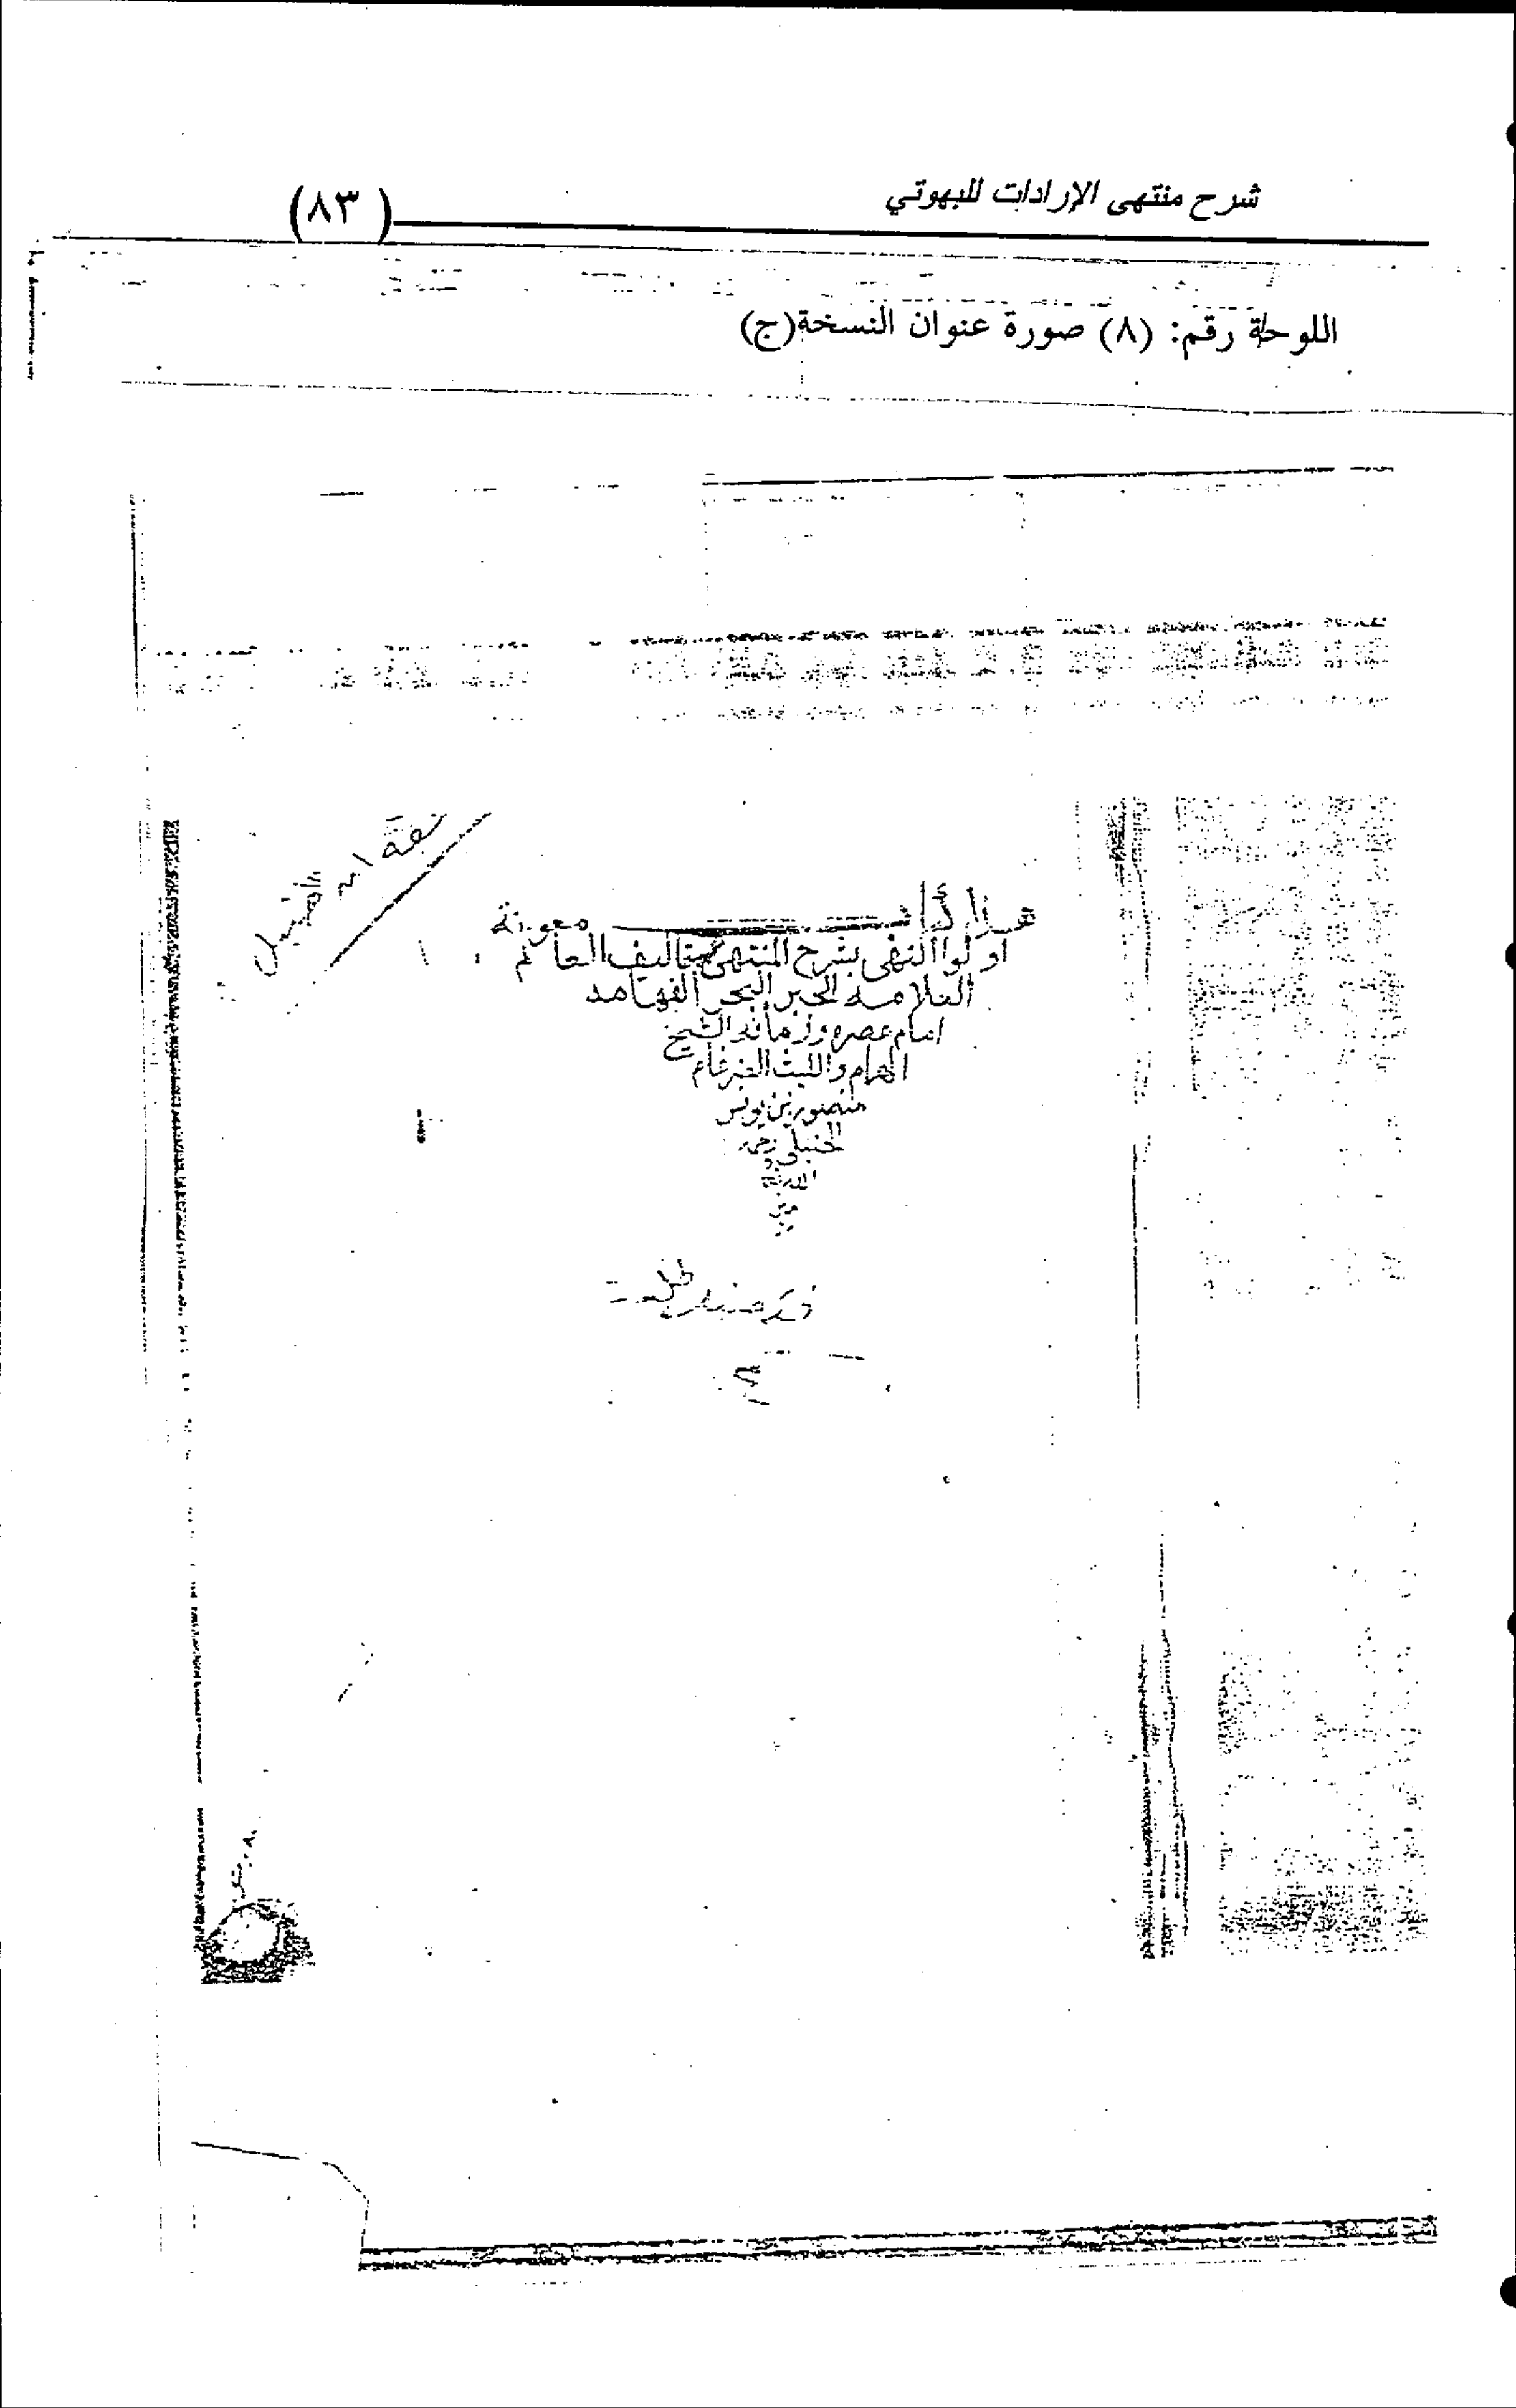 شرح منتهى الإرادات للبهوتي
(٨٣)
اللوحة رقم: (٨) صورة عنوان النسخة(ج)
هذا كتاب معونة
اولوا النهى بشرح المنتهى تاليف العالم
العلامه الحبر البحر الفهامه
امام عصره وزمانه الشيخ
الهمام والليث الضرغام
منصور بن يونس
الحنبلي رحمه
الله